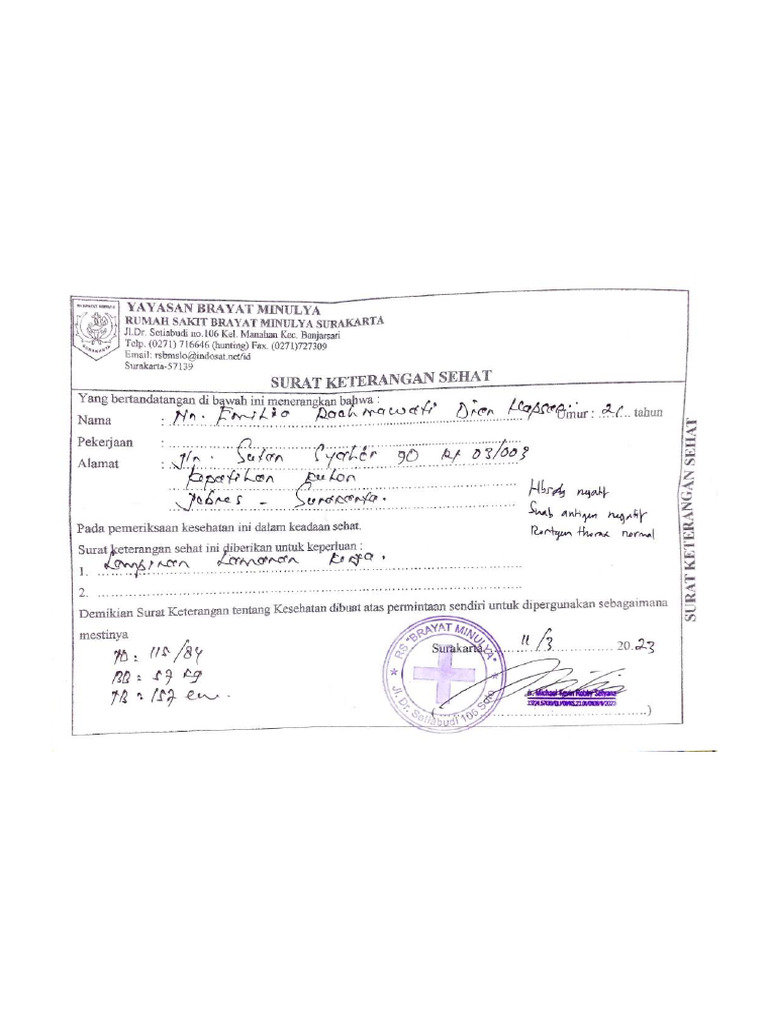 YAYASAN BRAYAT MINULYA
RUMAH SAKIT BRAYAT MINULYA SURAKARTA
Jl.Dr. Setiabudi no.106 Kel. Manahan Kec. Banjarsari
Telp. (0271) 716646 (hunting) Fax. (0271)727309
Email: rsbmslo@indosat.net/id
Surakarta-57139
SURAT KETERANGAN SEHAT
Yang bertandatangan di bawah ini menerangkan bahwa :
Nama : Nn. Emilia Rachmawati Dian Hapsari Umur : tahun
Pekerjaan :
Alamat : Jln. Sutan Syahrir 90 Rt 03/003
Kepatihan Kulon
Jebres - Surakarta.
HbsAg negatif
Swab antigen negatif
Rontgen thorax normal
Pada pemeriksaan kesehatan ini dalam keadaan sehat.
Surat keterangan sehat ini diberikan untuk keperluan :
1. Lampiran Lamaran Kerja.
2.
Demikian Surat Keterangan tentang Kesehatan dibuat atas permintaan sendiri untuk dipergunakan sebagaimana
mestinya
Surakarta, 11/3 2023
TD : 115/84
BB : 57 kg
TB : 157 cm.
RS "BRAYAT MINULYA"
Jl. Dr. Setiabudi 106 Solo
dr. Michael Kevin Robby Setyana
SURAT KETERANGAN SEHAT